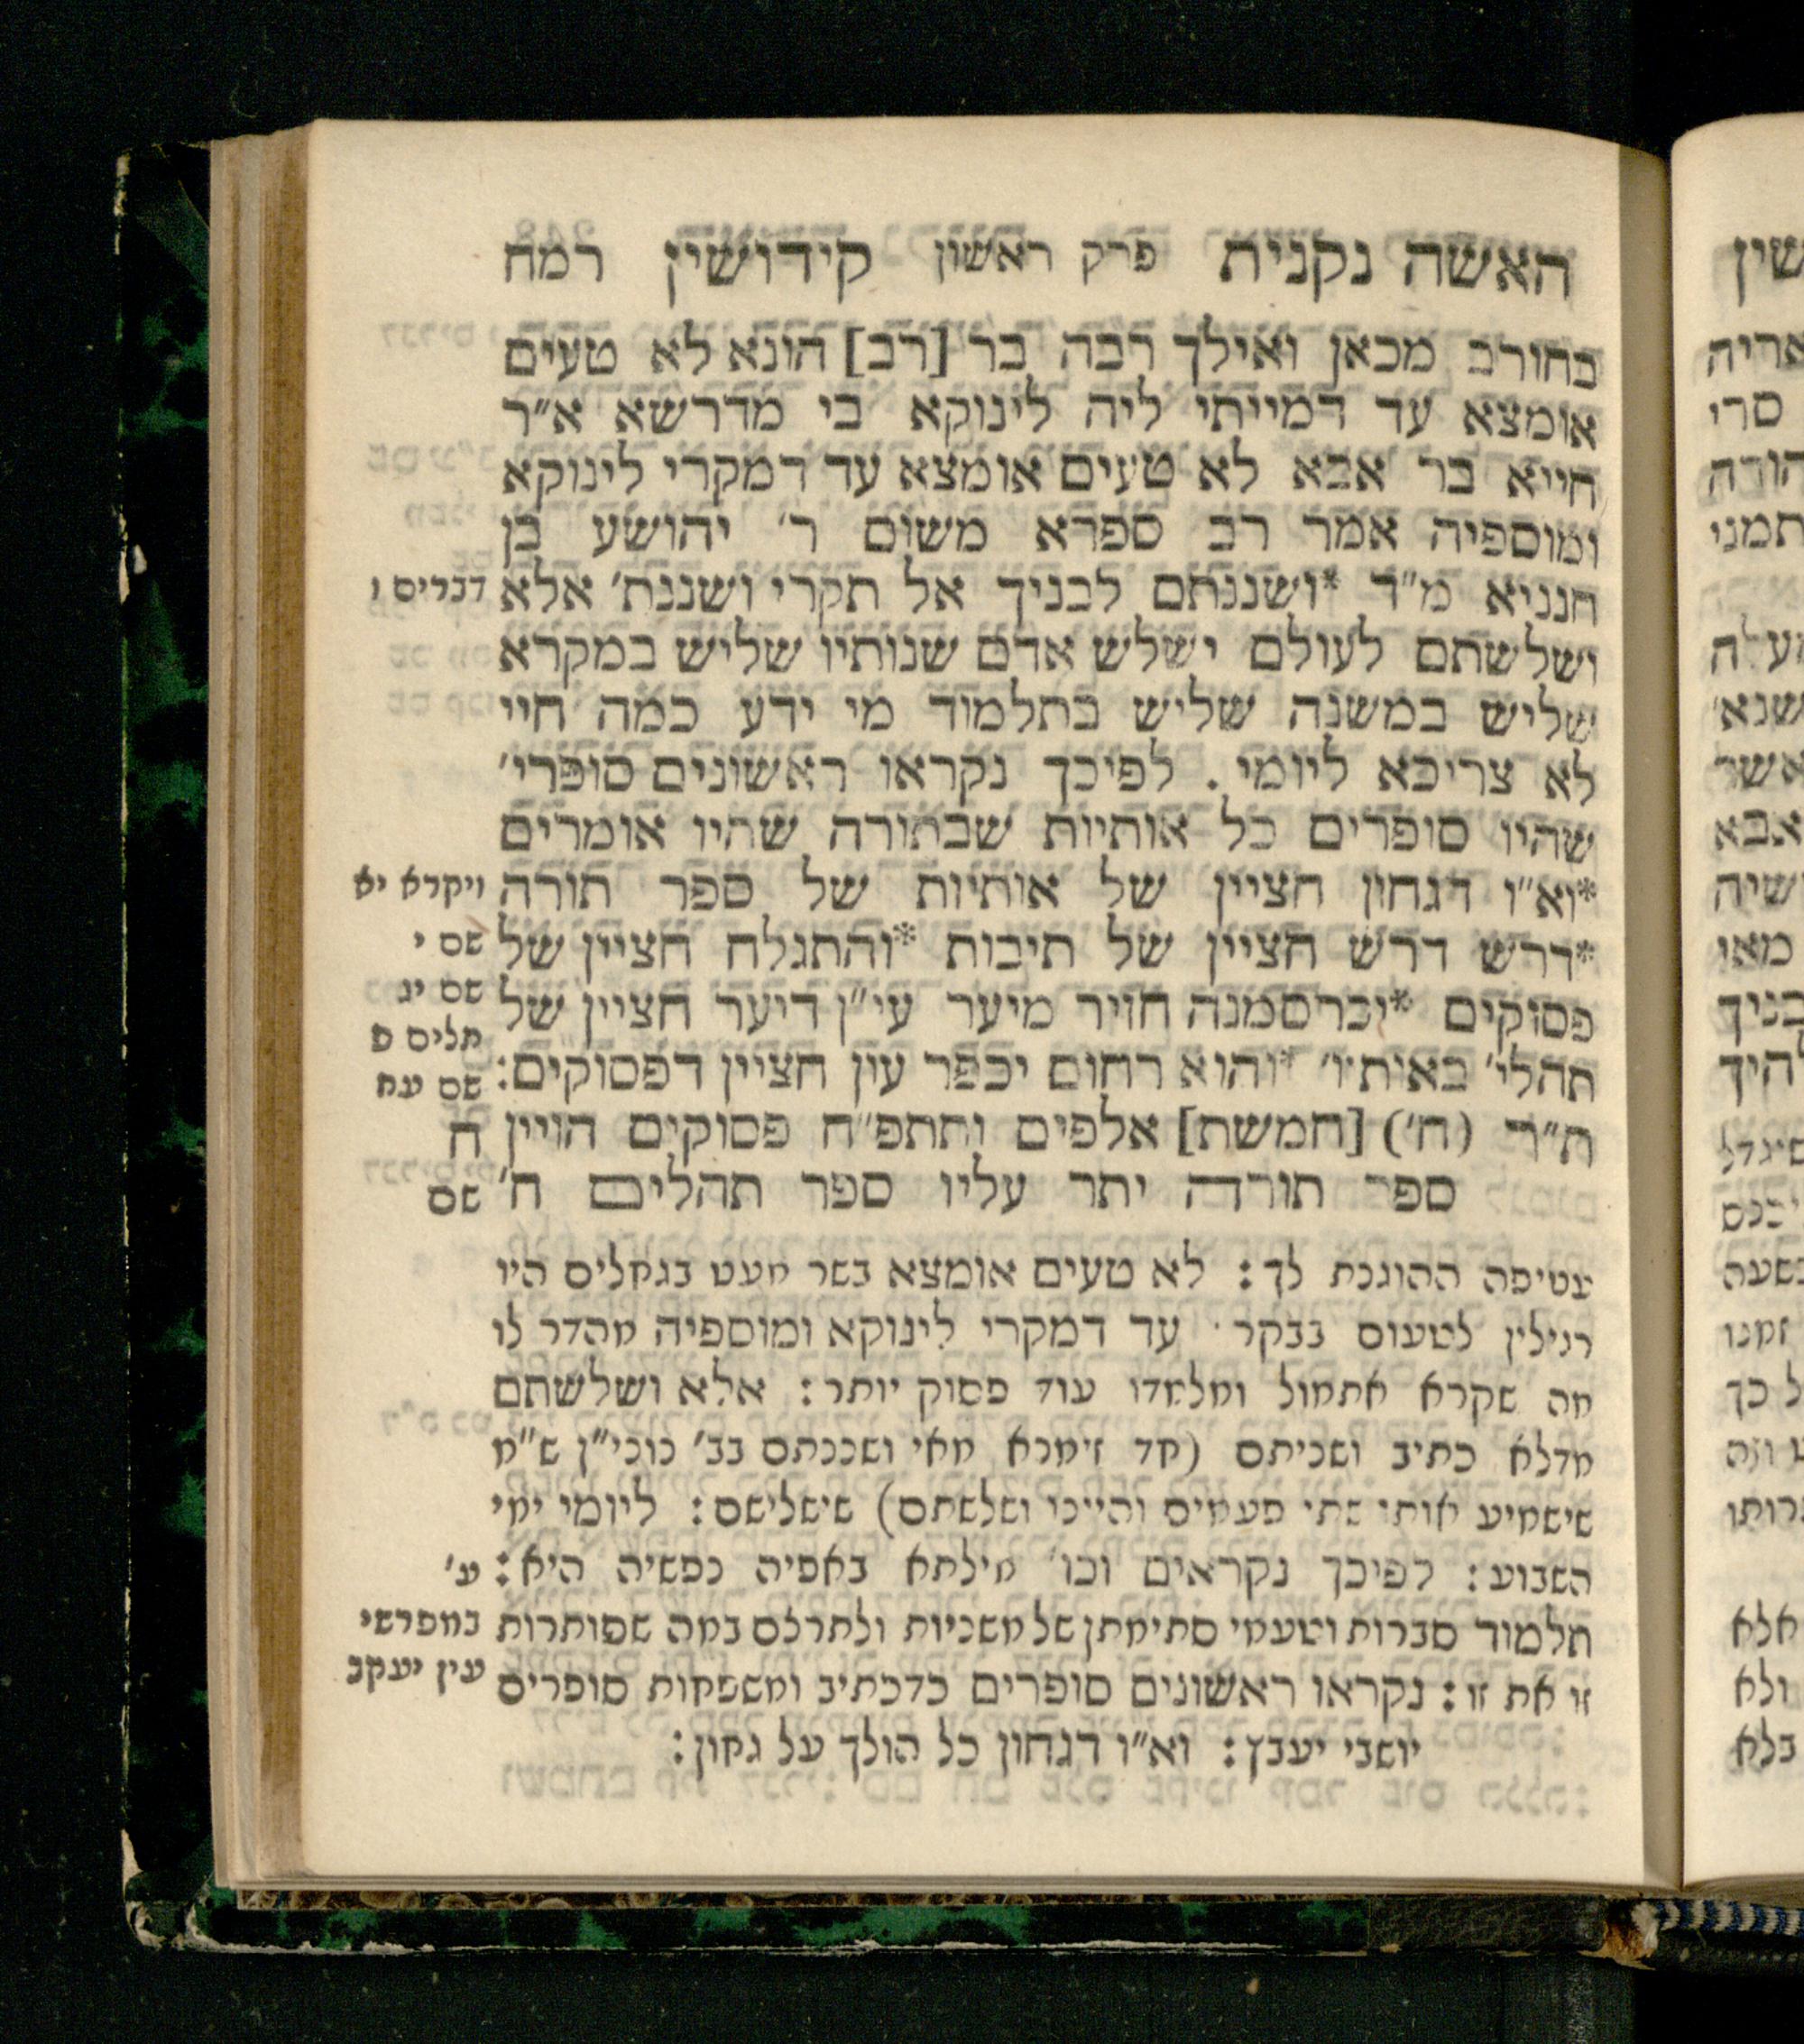 האשה נקנית פרק ראשון קידושין רמח
בחורב מכאן ואילך רבה בר [רב] הונא לא טעים
אומצא עד דמייתי ליה לינוקא בי מדרשא א״ר
חייא בר אבא לא טעים אומצא עד דמקרי לינוקא
ומוספיה אמר רב ספרא משום ר׳ יהושע בן
חנניא מ״ד *ושננתם לבניך אל תקרי ושננת׳ אלא
דברים ו
ושלשתם לעולם ישלש אדם שנותיו שליש במקרא
שליש במשנה שליש בתלמוד מי ידע כמה חיי
לא צריכא ליומי. לפיכך נקראו ראשונים סופרי׳
שהיו סופרים כל אותיות שבתורה שהיו אומרים
*וא״ו דגחון חציין של אותיות של ספר תורה
ויקרא יא
*דרש דרש חציין של תיבות *והתגלח חציין של
שם י
פסוקים *יכרסמנה חזיר מיער עי״ן דיער חציין של
שם יג
תלים פ
תהלי׳ באותיו׳ *והוא רחום יכפר עון חציין דפסוקים:
שם עח
ת״ר (ח׳) [חמשת] אלפים ותתפ״ח פסוקים הויין
ח
ספר תורה יתר עליו ספר תהלים ח׳
שם
עטיפה ההוגנת לך: לא טעים אומצא בשר מעט בגחלים היו
רגילין לטעום בבקר· עד דמקרי לינוקא ומוספיה מהדר לו
מה שקרא אתמול ומלמדו עוד פסוק יותר: אלא ושלשתם
מדלא כתיב ושניתם (חד זימנא מאי ושננתם בב׳ נוני״ן ש״מ
שישמיע אותו שתי פעמים והיינו ושלשתם) שישלישם: ליומי ימי
השבוע: לפיכך נקראים וכו׳ מילתא באפיה נפשיה היא:
ע׳
תלמוד סברות וטעמי סתימתן של משניות ולתרלם במה שסותרות
במפרשי
זו את זו: נקראו ראשונים סופרים כדכתיב ומשפחות סופרים
עין יעקב
יושבי יעבץ: וא״ו דגחון כל הולך על גחון: